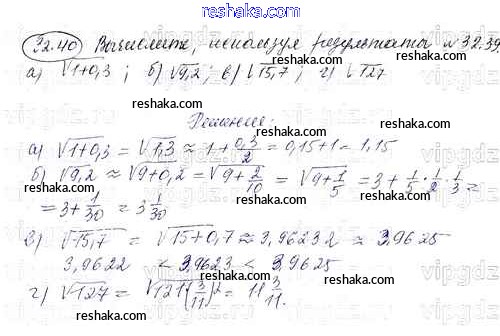 reshaka.com
32.40 Вычислите, используя результаты №32.39.
а) √1+0,3 ; б) √9,2 ; в) √15,7 ; г) √127
reshaka.com reshaka.com
Решение:
а) √1+0,3 = √1,3 ≈ 1 + 0,3/2 = 0,15+1 = 1,15
б) √9,2 ≈ √9+0,2 = √9+2/10 = √9+1/5 = 3 + 1/5 · 1/2 · 1/3 =
= 3 + 1/30 = 3 1/30
reshaka.com
в) √15,7 = √15+0,7 ≈ 3,96232 ≈ 3,9625
3,9622 < 3,9623 < 3,9625
г) √127 = √121(3/11)² = 11 3/11.
reshaka.com